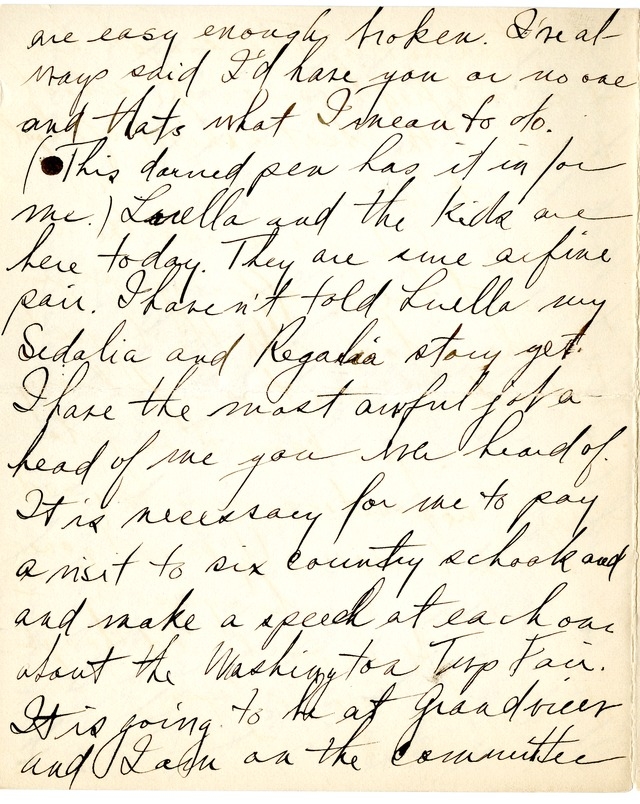 are easy enough broken. I've al-
ways said I'd have you or no one
and thats what I mean to do.
(This darned pen has it in for
me.) Luella and the kids are
here today. They are sure a fine
pair. I haven't told Luella my
Sedalia and Regalia story yet.
I have the most awful job a-
head of me you ever heard of.
It is necessary for me to pay
a visit to six country schools and
and make a speech at each one
about the Washington Twp Fair.
It is going to be at Grandview
and I am on the committee